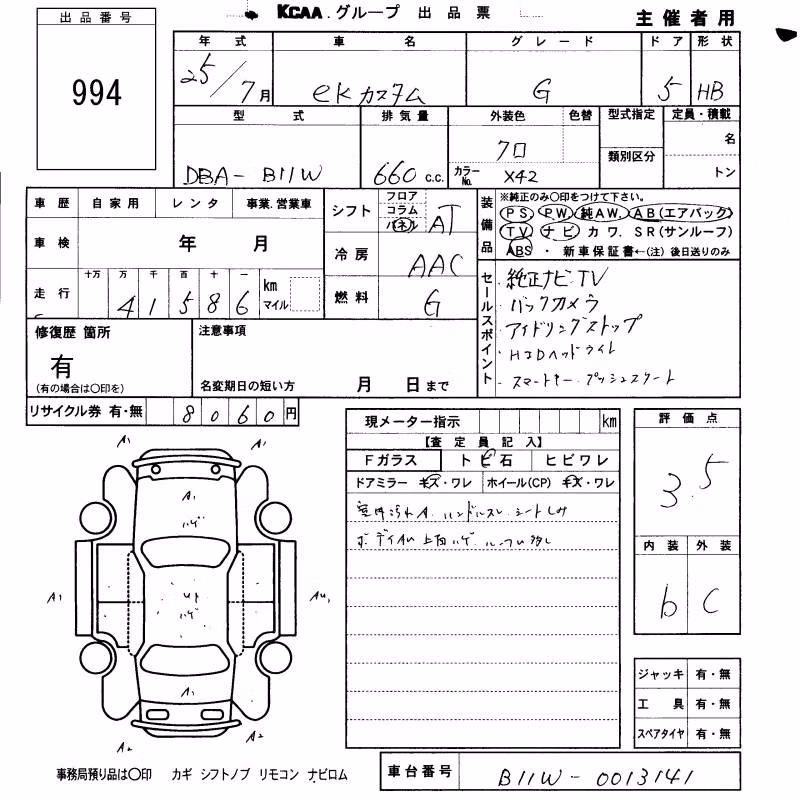 KCAA.グループ 出品票
主催者用
出品番号
994
年式 車名 グレード ドア 形状
25/7月 ekカスタム G 5 HB
型式 排気量 外装色 色替 型式指定 定員・積載
DBA-B11W 660c.c. クロ 類別区分 名
カラーNo. X42 トン
車歴 自家用 レンタ 事業.営業車
車検 年 月
走行 十万 万 千 百 十 一 km マイル
4 1 5 8 6
シフト フロア コラム パネル AT
冷房 AAC
燃料 G
装備品
※純正のみ〇印をつけて下さい。
PS PW 純AW. AB(エアバック)
TV ナビ カワ. SR(サンルーフ)
ABS ・ 新車保証書←(注) 後日送りのみ
セールスポイント
純正ナビ TV
バックカメラ
アイドリングストップ
・HIDヘッドライト
・スマートキー プッシュスタート
修復歴 箇所
有
(有の場合は〇印を)
注意事項
名変期日の短い方 月 日まで
リサイクル券 有・無 8060円
現メーター指示 km
【査定員記入】
Fガラス トビ石 ヒビワレ
ドアミラー キズ・ワレ ホイール(CP) キズ・ワレ
室内汚れA ハンドルスレ シートしみ
ボディAU 上面ハゲ
評価点
3.5
内装 外装
b C
ジャッキ 有・無
工具 有・無
スペアタイヤ 有・無
A1 A1
A1
ハゲ
A1 AU1
ハゲ
A1
A2 A2
事務局預り品は〇印 カギ シフトノブ リモコン ナビロム
車台番号 B11W-0013141